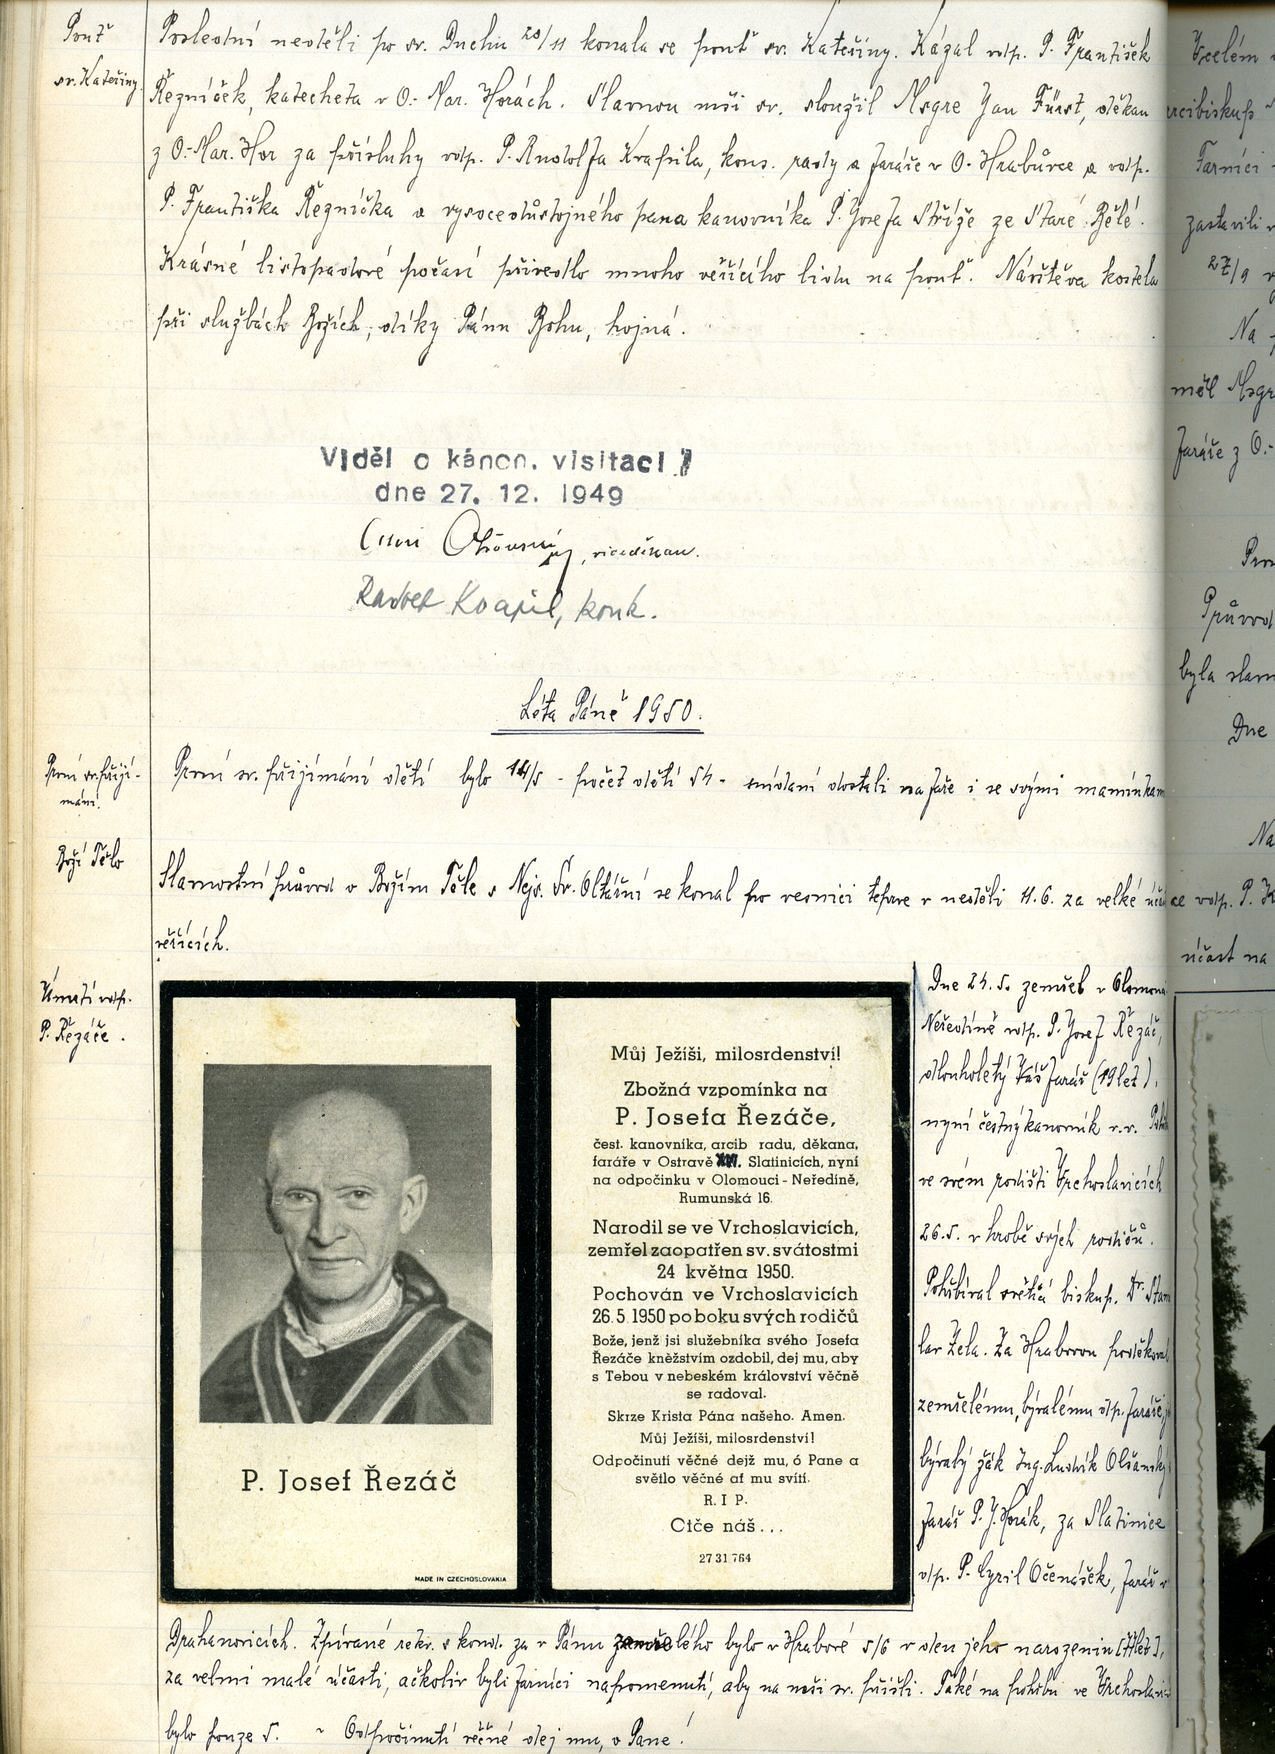 Pouť
sv. Kateřiny.
Poslední neděli po sv. Duchu 20/11 konala se pouť sv. Kateřiny. Kázal vdp. P. František
Řezníček, katecheta v O.- Mar. Horách. Slavnou mši sv. sloužil Msgre Jan Fürst, děkan
z O.-Mar. Hor za přísluhy vdp. P. Rudolfa Kvapila, kons. rady a faráře v O.- Hrabůvce a vdp.
P. Františka Řezníčka a vysocedůstojného pana kanovníka P. Josefa Stříže ze Staré Bělé.
Krásné listopadové počasí přivedlo mnoho věřícího lidu na pouť. Návštěva kostela
při službách Božích, díky Pánu Bohu, hojná.
Viděl o kánon. visitaci
dne 27. 12. 1949
, vicedekan.
Kvapil, konk.
Léta Páně 1950.
První sv. přijí-
mání.
První sv. přijímání dětí bylo 14/5 - počet dětí 54 - snídani dostali na faře i se svými maminkam
Boží Tělo
Slavnostní průvod o Božím Těle s Nejs. Sv. Oltářní se konal po vesnici teprve v neděli 11.6. za velké úča
věřících.
Úmrtí vdp.
P. Řezáče.
P. Josef Řezáč
MADE IN CZECHOSLOVAKIA
Můj Ježíši, milosrdenství!
Zbožná vzpomínka na
P. Josefa Řezáče,
čest. kanovníka, arcib radu, děkana,
faráře v Ostravě Slatinicích, nyní
na odpočinku v Olomouci - Neředíně,
Rumunská 16.
Narodil se ve Vrchoslavicích,
zemřel zaopatřen sv. svátostmi
24 května 1950.
Pochován ve Vrchoslavicích
26. 5. 1950 po boku svých rodičů
Bože, jenž jsi služebníka svého Josefa
Řezáče kněžstvím ozdobil, dej mu, aby
s Tebou v nebeském království věčně
se radoval.
Skrze Krista Pána našeho. Amen.
Můj Ježíši, milosrdenství!
Odpočinutí věčné dejž mu, ó Pane a
světlo věčné ať mu svítí.
R. I P.
Otče náš...
27 31 764
Dne 24. 5. zemřel v Olomou
Neředíně vdp. P. Josef Řezáč,
dlouholetý farář (19 let),
nyní čestný kanovník r.v.
ve svém rodišti Vrchoslavicích
26.5. v hrobě svých rodičů.
Pohřbíval světící biskup. Dr. Stani
lav Zela. Za Hrabovou poděkoval
zemřelému, bývalému vdp. faráři,
bývalý žák Ing. Ludvík Olšanský
farář P. J. Horák, za Slatinice
vdp. P. Cyril Očenášek, farář v
Drahanovicích. Zpívané rekv. s kond. za v Pánu zemřelého bylo v Hrabové 5/6 v den jeho narozenin
za velmi malé účasti, ačkoliv byli farníci napomenutí, aby na mši sv. přišli. Také na pohřbu ve Vrchoslavi
bylo pouze 5. - Odpočinutí věčné dej mu, ó Pane!
Vcelém
rcibiskup
Farníci
zastavili
27/9
Na
měl Msgr
faráře z O.-
Průvod
byla slav
Dne
Na
ce vdp. P. K
účast na